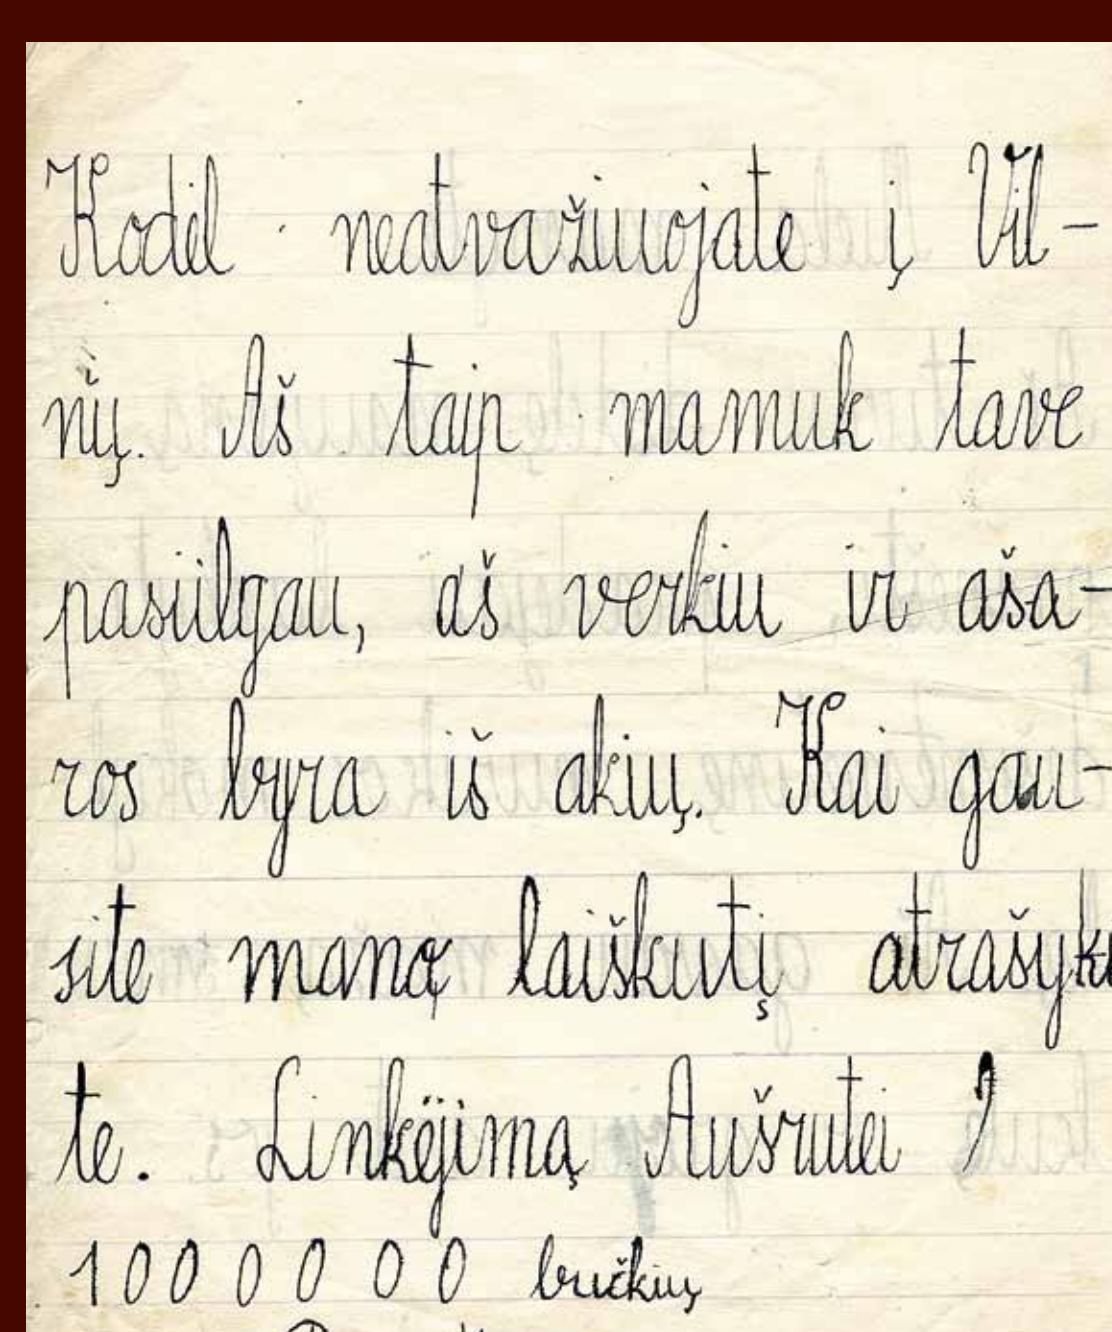 Kodėl neatvažiuojate į Vil-
nių. Aš taip mamuk tave
pasiilgau, aš verkiu ir aša-
ros byra iš akių. Kai gau-
site maną laiškutį atrašyki
te. Linkėjimą Aušrutei
1000000 bučkių